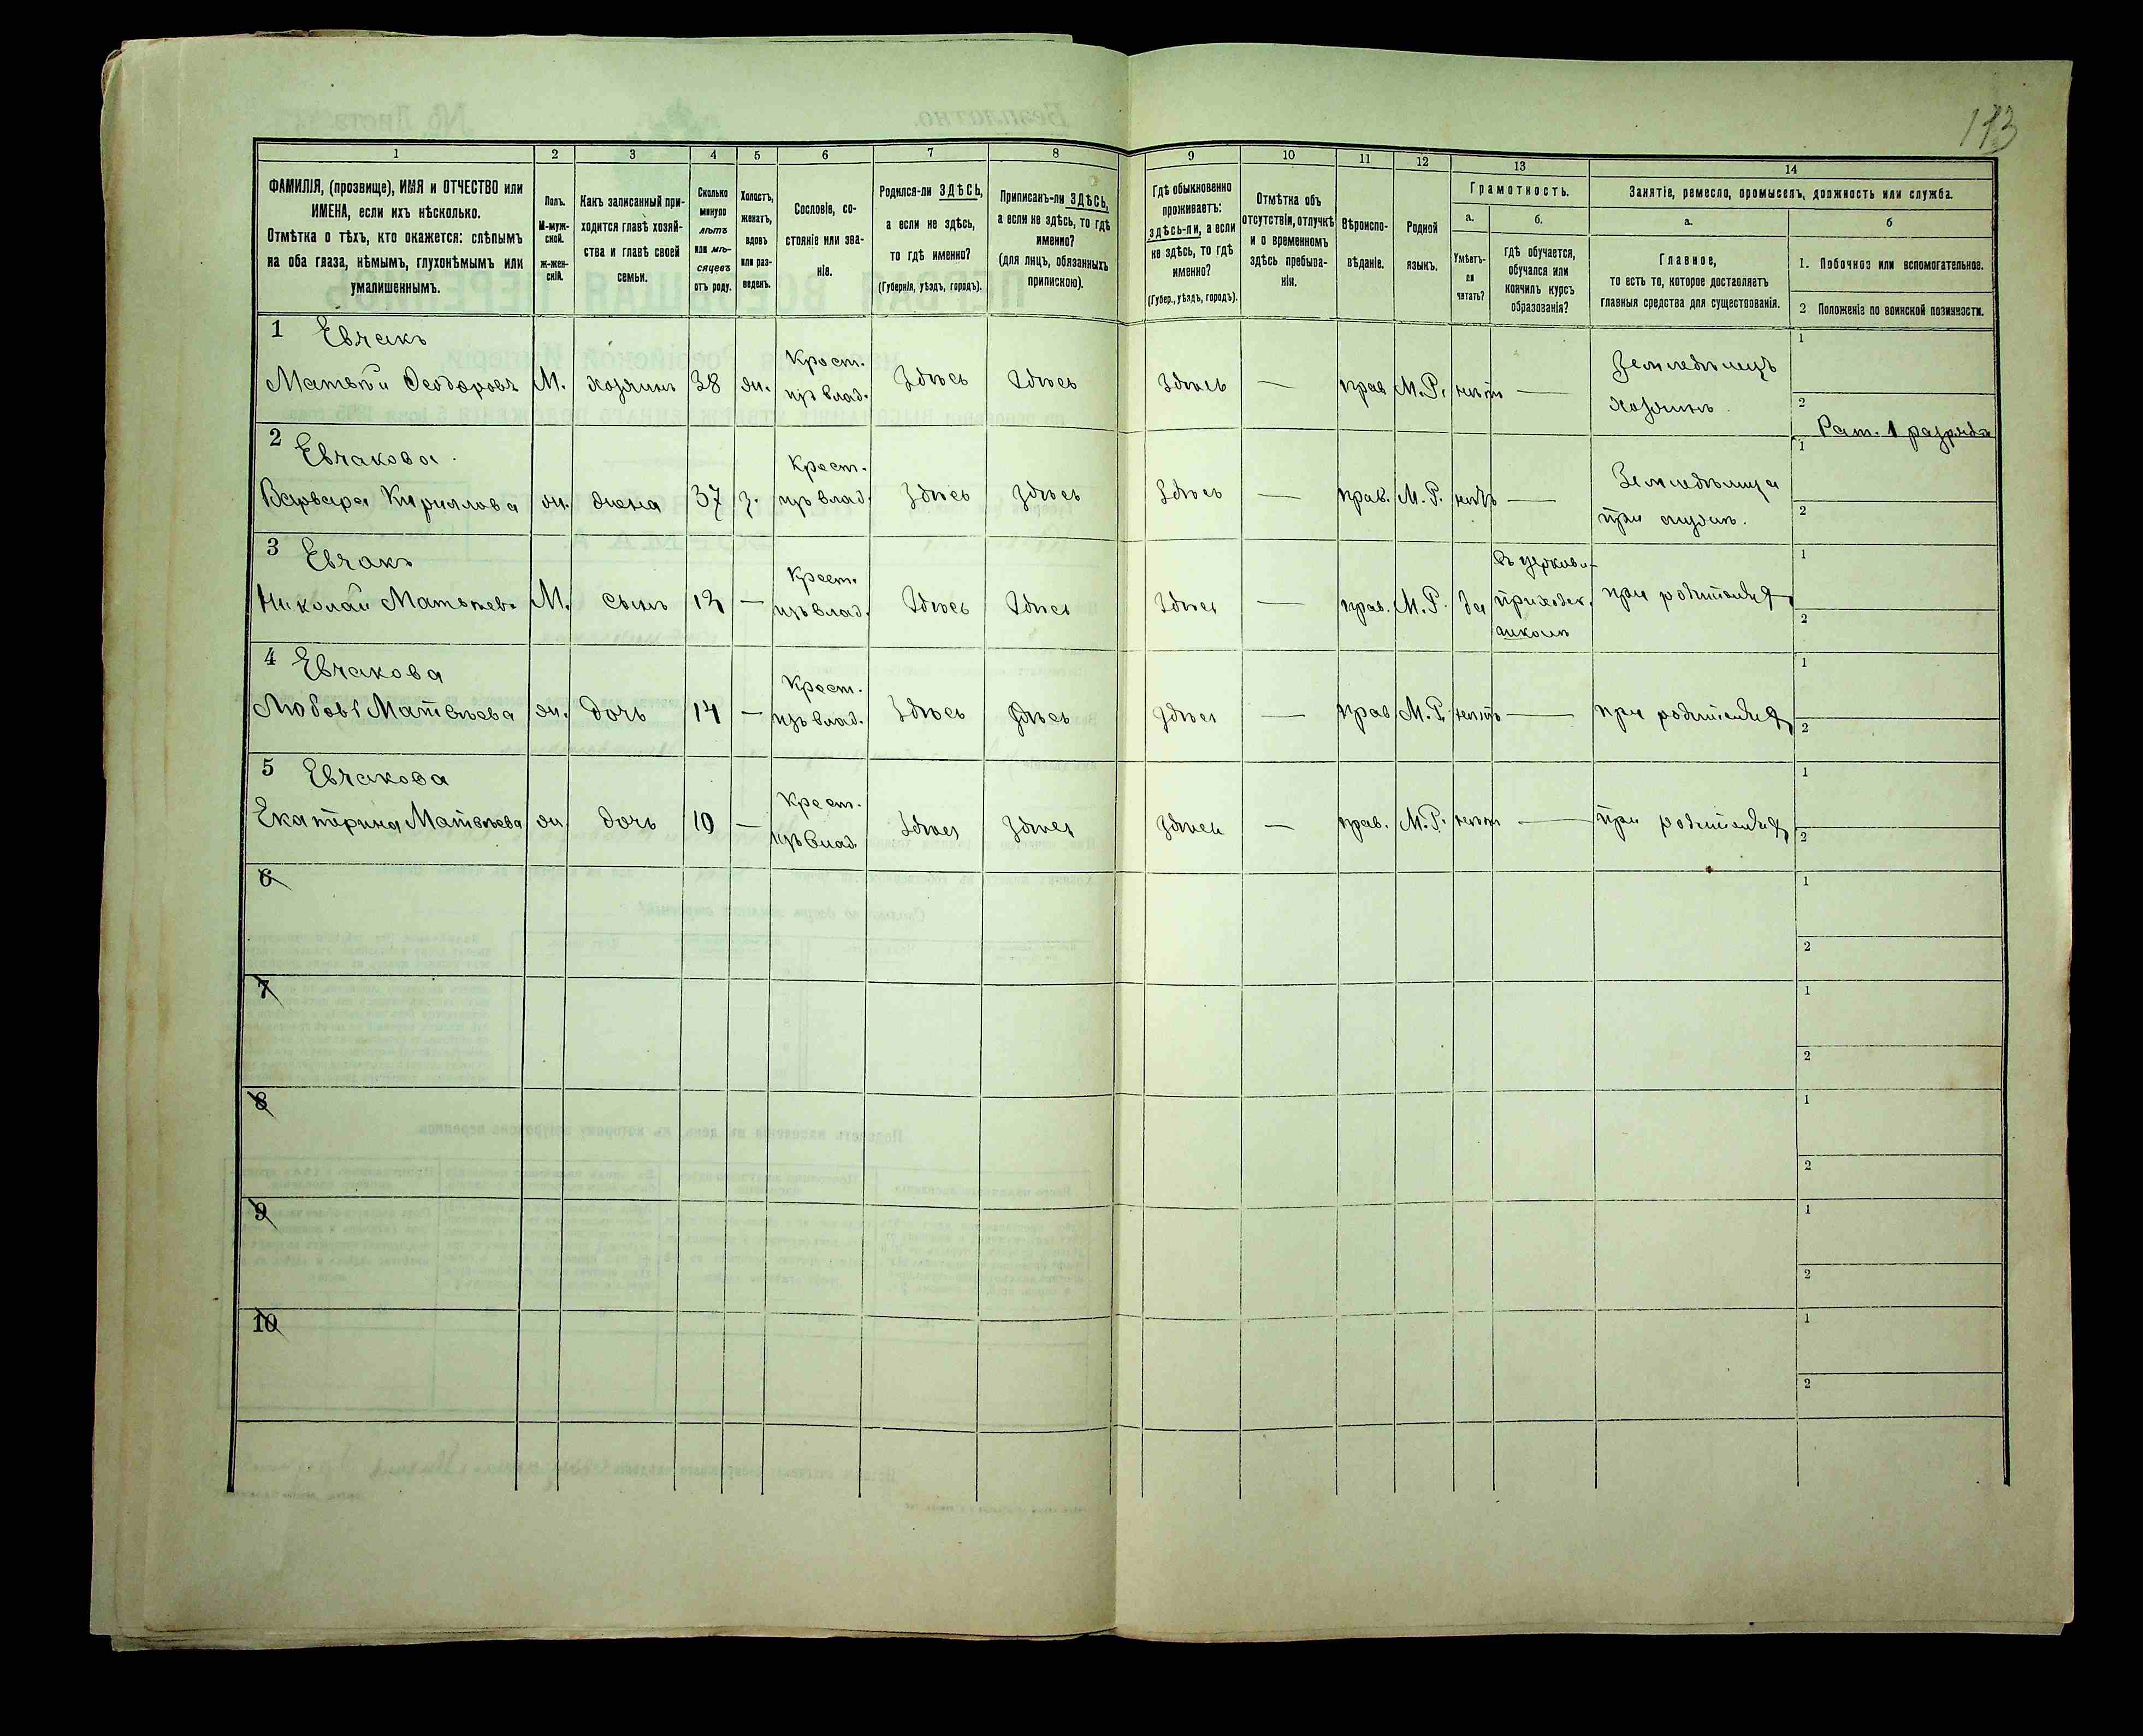 113
1
2
3
4
5
6
7
8
9
10
11
12
13
14
ФАМИЛІЯ, (прозвище), ИМЯ и ОТЧЕСТВО или
ИМЕНА, если ихъ нѣсколько.
Отмѣтка о тѣхъ, кто окажется: слѣпымъ
на оба глаза, нѣмымъ, глухонѣмымъ или
умалишеннымъ.
Полъ.
М-муж-
ской.
ж-жен-
скій.
Какъ записанный при-
ходится главѣ хозяй-
ства и главѣ своей
семьи.
Сколько
минуло
лѣтъ
или мѣ-
сяцевъ
отъ роду.
Холостъ,
женатъ,
вдовъ
или раз-
веденъ.
Сословіе, со-
стояніе или зва-
ніе.
Родился-ли ЗДѢСЬ,
а если не здѣсь,
то гдѣ именно?
(Губернія, уѣздъ, городъ).
Приписанъ-ли ЗДѢСЬ,
а если не здѣсь, то гдѣ
именно?
(для лицъ, обязанныхъ
припискою).
Гдѣ обыкновенно
проживаетъ:
здѣсь-ли, а если
не здѣсь, то гдѣ
именно?
(Губер., уѣздъ, городъ).
Отмѣтка объ
отсутствіи, отлучкѣ
и о временномъ
здѣсь пребыва-
ніи.
Вѣроиспо-
вѣданіе.
Родной
языкъ.
Грамотность.
а.
б.
Умѣетъ-
ли
читать?
гдѣ обучается,
обучался или
кончилъ курсъ
образованія?
Занятіе, ремесло, промыселъ, должность или служба.
а.
б
Главное,
то есть то, которое доставляетъ
главныя средства для существованія.
1. Побочное или вспомогательное.
2 Положеніе по воинской повинности.
1 Евчакъ
Матвѣй Феодоровъ М. хозяинъ 38 ж. Крест. изъ влад. Здѣсь Здѣсь Здѣсь — прав М.Р. нѣтъ — Земледѣлецъ хозяинъ.
1
2 Рат. 1 разряда
2 Евчакова.
Варвара Кириллова ж. жена 37 з. Крест. изъ влад. Здѣсь Здѣсь Здѣсь — прав. М.Р. нѣтъ — Земледѣлица при мужѣ.
1
2
3 Евчакъ
Николай Матвѣевъ М. сынъ — Крест. изъ влад. Здѣсь Здѣсь Здѣсь — прав. М.Р. да въ церковн- приходск. школѣ при родителяхъ
1
2
4 Евчакова
Любовь Матвѣева ж. дочь 14 — Крест. изъ влад. Здѣсь Здѣсь Здѣсь — прав М.Р. нѣтъ — при родителяхъ
1
2
5 Евчакова
Екатерина Матвѣева ж дочь 10 — Крест. изъ влад. Здѣсь Здѣсь Здѣсь — прав. М.Р. нѣтъ — при родителяхъ
1
2
6
1
2
7
1
2
8
1
2
9
1
2
10
1
2